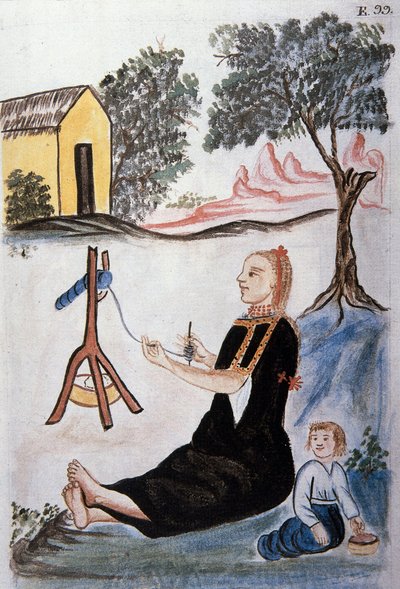 E. 99.